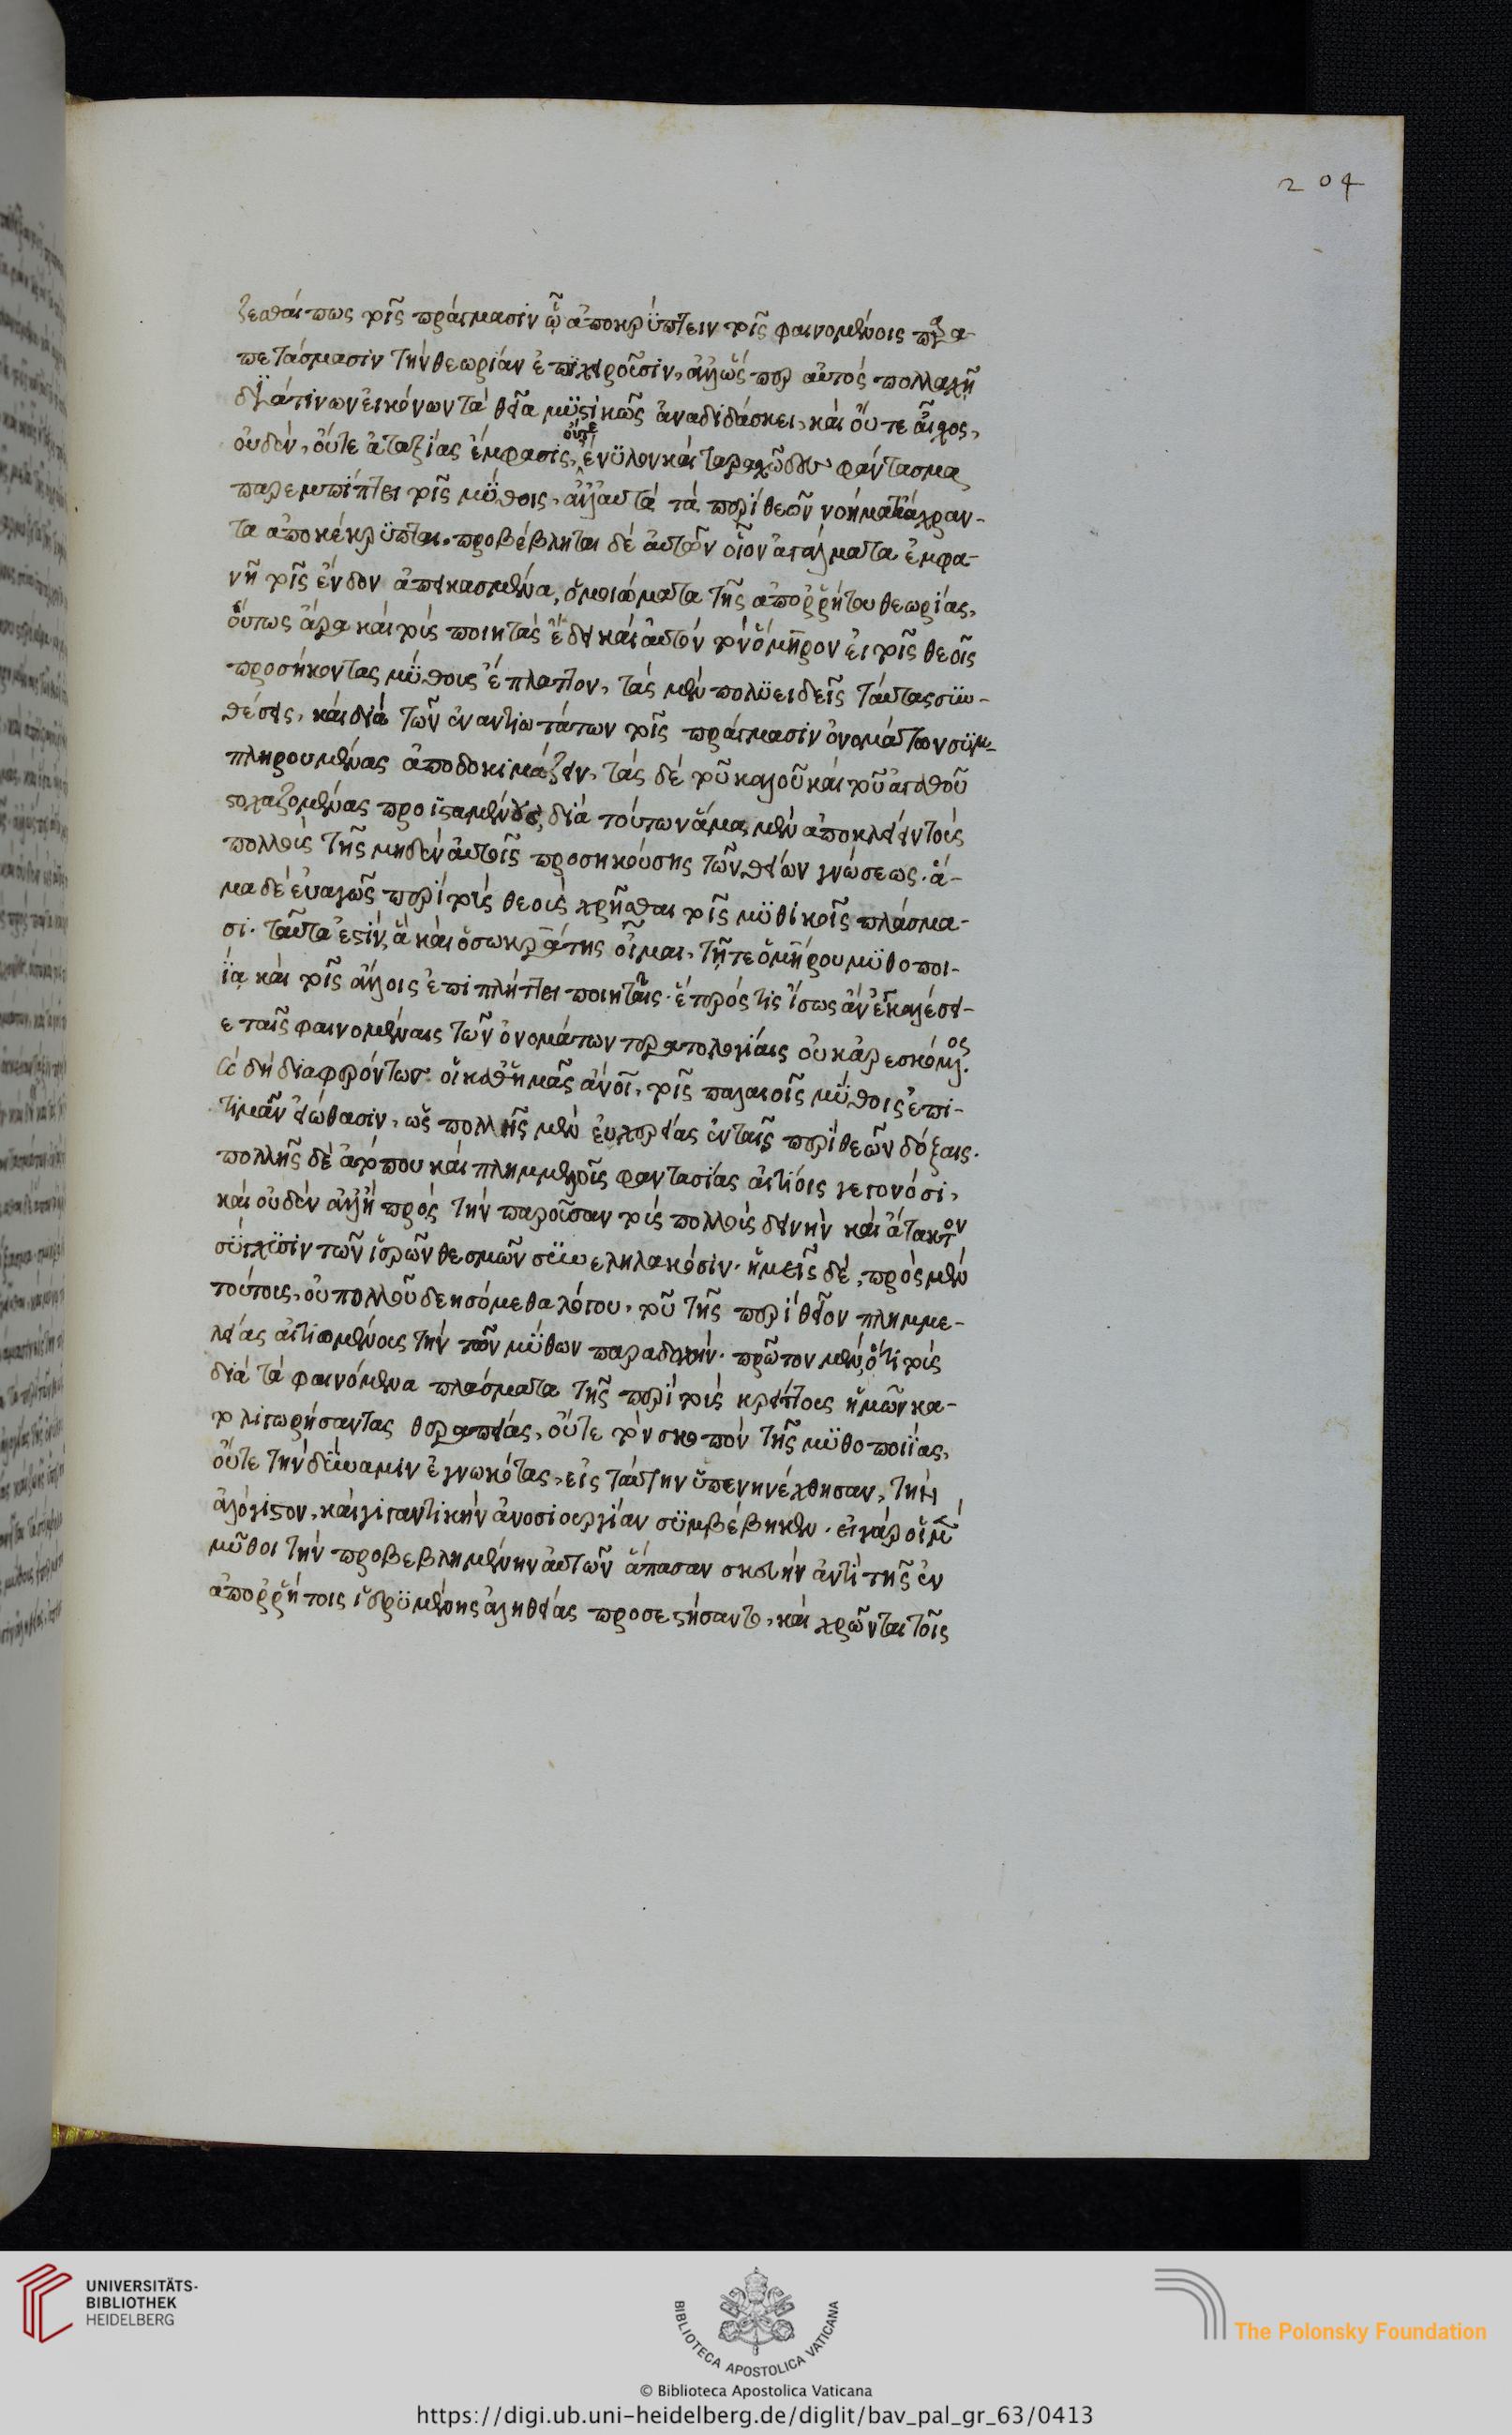 204
ζεσθαί πως τοῖς πράγμασιν ὧν ἀποκρύπτειν τοῖς φαινομένοις παρα-
πετάσμασιν τὴν θεωρίαν ἐπιχειροῦσιν, ἀλλ' ὥσπερ αὐτὸς πολλαχῇ
διά τινων εἰκόνων τὰ θεῖα μυστικῶς ἀναδιδάσκει, καὶ οὔτε αἶσχος
οὐδέν, οὔτε ἀταξίας ἔμφασις, οὔτε ἔνυλον καὶ ταραχῶδες φάντασμα
παρεμπίπτει τοῖς μύθοις, ἀλλ' αὐτὰ τὰ περὶ θεῶν νοήματα ἄχραν-
τα ἀποκέκρυπται, προβέβληται δὲ αὐτῶν οἷον ἀγάλματα ἐμφα-
νῆ τοῖς ἔνδον ἀπεικασμένα, ὁμοιώματα τῆς ἀπορρήτου θεωρίας,
οὕτως ἄρα καὶ τοὺς ποιητὰς ἔδει καὶ αὐτὸν τὸν ὅμηρον εἰ τοῖς θεοῖς
προσήκοντας μύθους ἔπλαττον, τὰς μὲν πολυειδεῖς ταύτας συν-
θέσεις, καὶ διὰ τῶν ἐναντιωτάτων τοῖς πράγμασιν ὀνομάτων συμ-
πληρουμένας ἀποδοκιμάζειν, τὰς δὲ τοῦ καλοῦ καὶ τοῦ ἀγαθοῦ
στοχαζομένας προϊσταμένους, διὰ τούτων ἅμα μὲν ἀποκλείειν τοὺς
πολλοὺς τῆς μηδὲν αὐτοῖς προσηκούσης τῶν θείων γνώσεως. ἅ-
μα δὲ εὐαγῶς περὶ τοὺς θεοὺς χρῆσθαι τοῖς μυθικοῖς πλάσμα-
σι. ταῦτά ἐστιν, ἃ καὶ ὁ σωκράτης οἶμαι, τῇ τε ὁμήρου μυθοποι-
ΐᾳ καὶ τοῖς ἄλλοις ἐπιπλήττει ποιηταῖς. ἕτερός τις ἴσως ἂν ἐγκαλέσει-
ε ταῖς φαινομέναις τῶν ὀνομάτων τερατολογίαις οὐκ ἀρεσκόμενος
δὴ διαφερόντως οἱ καθ' ἡμᾶς ἄνοι, τοῖς παλαιοῖς μύθοις ἐπι-
τιμᾶν εἰώθασιν, ὡς πολλῆς μὲν εὐχερείας ἐν ταῖς περὶ θεῶν δόξαις.
πολλῆς δὲ ἀτόπου καὶ πλημμελοῦς φαντασίας αἰτίοις γεγονόσι,
καὶ οὐδὲν ἀλλ' ἢ πρὸς τὴν παροῦσαν τοὺς πολλοὺς δεινὴν καὶ ἄτακτον
σύγχυσιν τῶν ἱερῶν θεσμῶν συνεληλακόσιν. ἡμεῖς δέ, πρὸς μὲν
τούτους, οὐ πολλοῦ δεησόμεθα λόγου, τοῦ τῆς περὶ θεῖον πλημμε-
λείας αἰτιωμένους τὴν τῶν μύθων παραδοχήν. πρῶτον μὲν, ὅτι τοὺς
διὰ τὰ φαινόμενα πλάσματα τῆς περὶ τοὺς κρείττους ἡμῶν κα-
τολιγωρήσαντας θεραπείας, οὔτε τὸν σκοπὸν τῆς μυθοποιΐας,
οὔτε τὴν δύναμιν ἐγνωκότας, εἰς ταύτην ὑπενηνέχθησαν, τὴν
ἀλόγιστον, καὶ γιγαντικὴν ἀνοσιουργίαν συμβέβηκεν. εἰ γὰρ οἱ μὲν
μῦθοι τὴν προβεβλημένην αὐτῶν ἅπασαν σκευὴν ἀντὶ τῆς ἐν
ἀπορρήτοις ἱδρυμένης ἀληθείας προσεστήσαντο, καὶ χρῶνται τοῖς
UNIVERSITÄTS-
BIBLIOTHEK
HEIDELBERG
BIBLIOTECA APOSTOLICA VATICANA
The Polonsky Foundation
© Biblioteca Apostolica Vaticana
https://digi.ub.uni-heidelberg.de/diglit/bav_pal_gr_63/0413